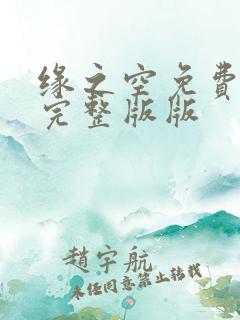 缘之空免費
完整版版
趙宇航
未经同意禁止转载